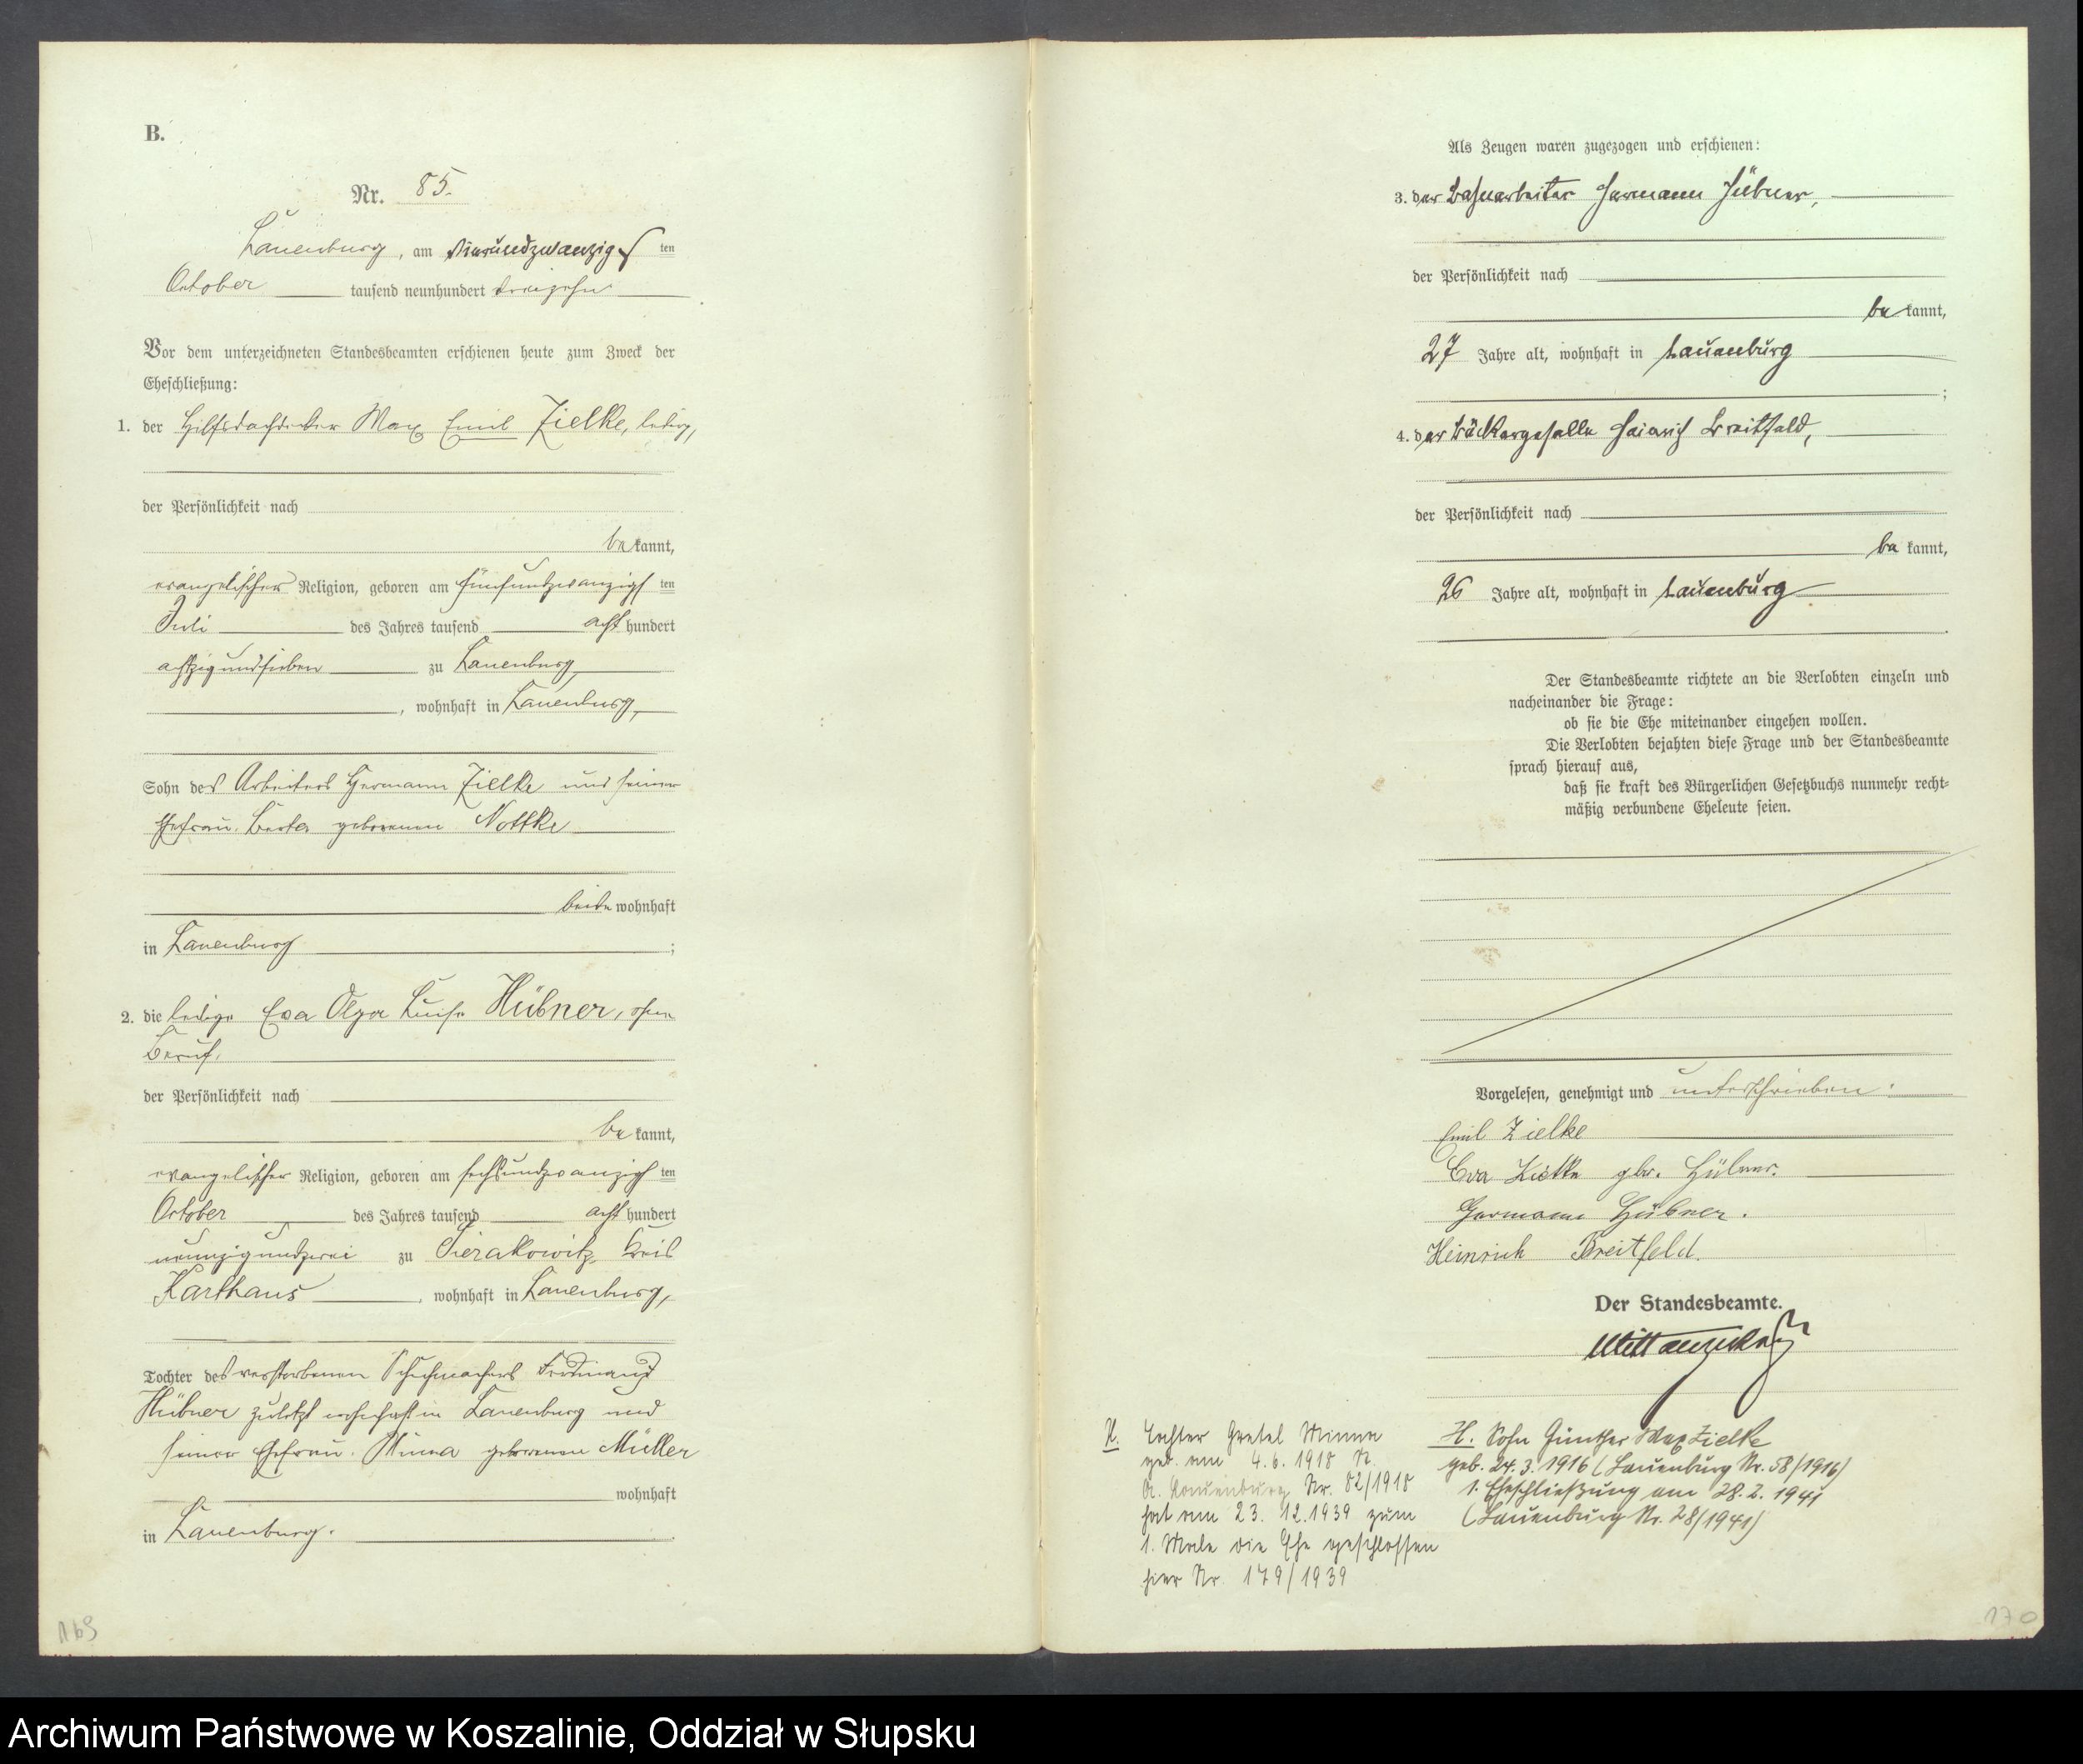 B.
Nr. 85.
Lauenburg, am vierundzwanzigsten
October tausend neunhundert dreizehn
Vor dem unterzeichneten Standesbeamten erschienen heute zum Zweck der
Eheschließung:
1. der Hilfsdachdecker Max Emil Zielke, ledig,
der Persönlichkeit nach
bekannt,
evangelischer Religion, geboren am fünfundzwanzigsten
Juli des Jahres tausend acht hundert
achtzigundsieben zu Lauenburg,
, wohnhaft in Lauenburg,
Sohn des Arbeiters Hermann Zielke und seiner
Ehefrau Berta geborenen Nottke
beide wohnhaft
in Lauenburg ;
2. die ledige Eva Olga Luise Hübner, ohne
Beruf,
der Persönlichkeit nach
bekannt,
evangelischer Religion, geboren am sechsundzwanzigsten
October des Jahres tausend acht hundert
neunzigundzwei zu Sierakowitz, Kreis
Karthaus, wohnhaft in Lauenburg,
Tochter des verstorbenen Schuhmachers Ferdinand
Hübner zuletzt wohnhaft in Lauenburg und
seiner Ehefrau Minna geborenen Müller
wohnhaft
in Lauenburg.
169
Als Zeugen waren zugezogen und erschienen:
3. der Bahnarbeiter Hermann Hübner,
der Persönlichkeit nach
bekannt,
27 Jahre alt, wohnhaft in Lauenburg
;
4. der Bäckergeselle Heinrich Breitfeld,
der Persönlichkeit nach
bekannt,
26 Jahre alt, wohnhaft in Lauenburg
Der Standesbeamte richtete an die Verlobten einzeln und
nacheinander die Frage:
ob sie die Ehe miteinander eingehen wollen.
Die Verlobten bejahten diese Frage und der Standesbeamte
sprach hierauf aus,
daß sie kraft des Bürgerlichen Gesetzbuchs nunmehr recht-
mäßig verbundene Eheleute seien.
Vorgelesen, genehmigt und unterschrieben:
Emil Zielke
Eva Zielke geb. Hübner.
Hermann Hübner.
Heinrich Breitfeld.
Der Standesbeamte.
H. Tochter Gretel Minna
geb. am 4.6.1918 St.
A. Lauenburg Nr. 82/1918
hat am 23. 12.1939 zum
1. Male die Ehe geschlossen
hier Nr. 179/1939
H. Sohn Günther Max Zielke
geb. 24.3.1916 (Lauenburg Nr. 58/1916)
1. Eheschließung am 28.2.1941
(Lauenburg Nr. 28/1941)
170
Archiwum Państwowe w Koszalinie, Oddział w Słupsku